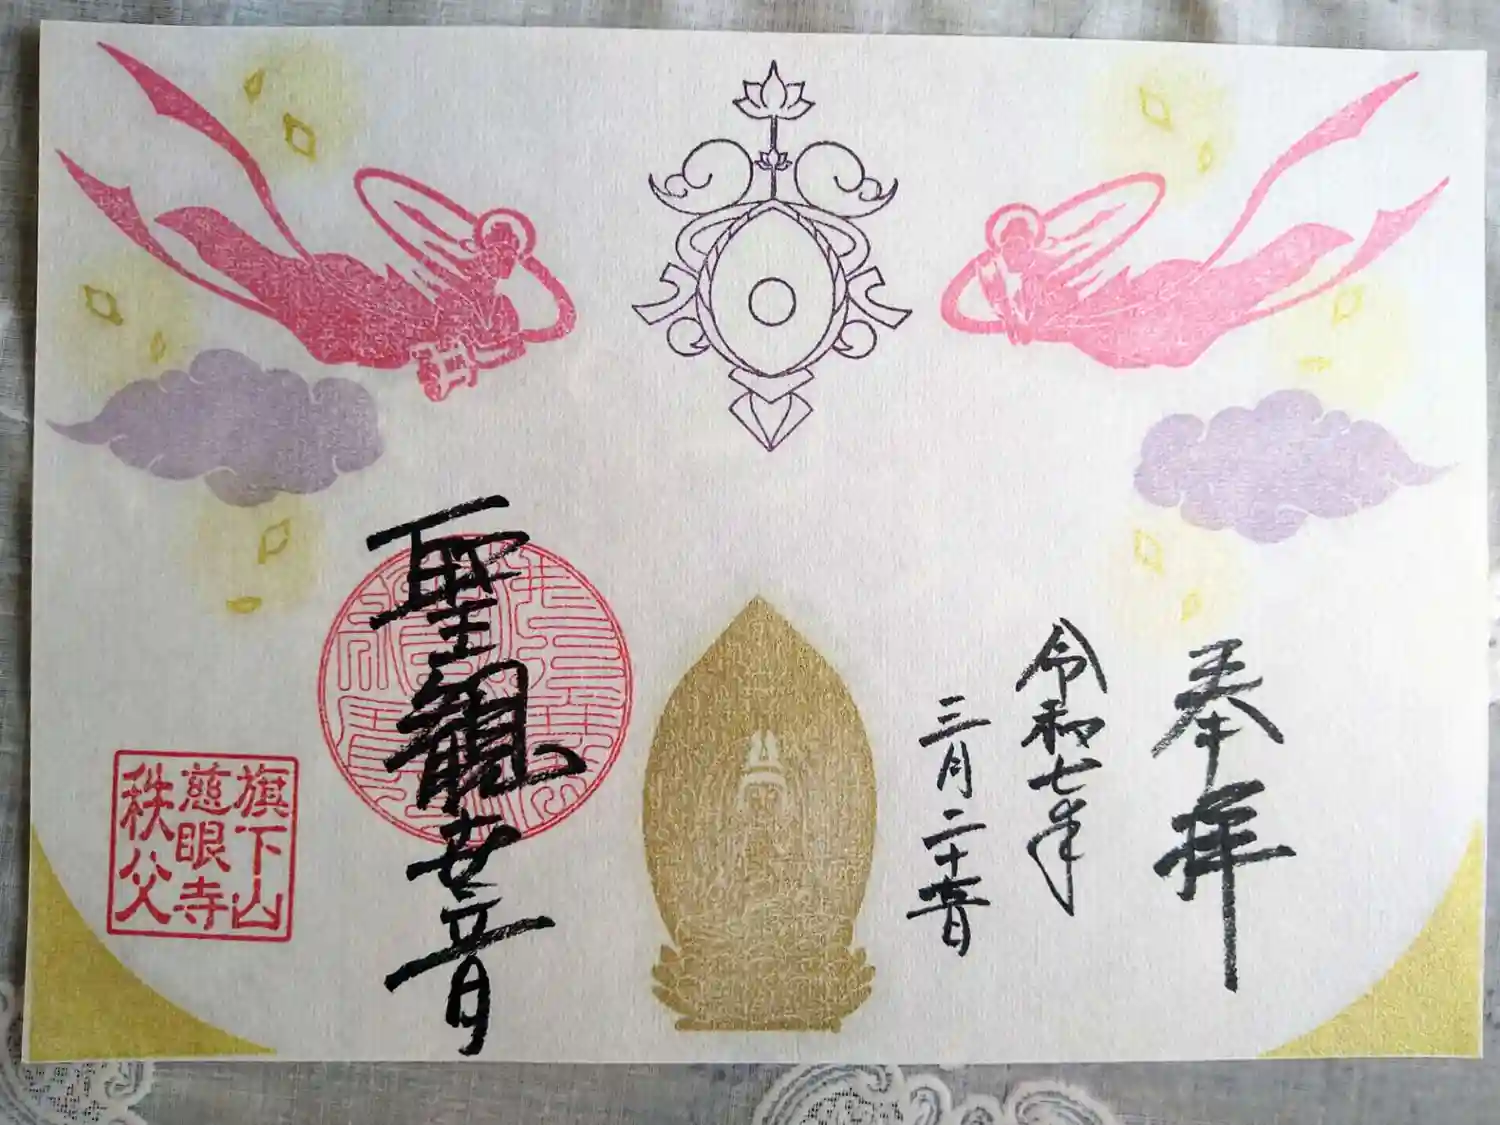 奉拝
令和七年
三月二十五日
聖觀世音
旗下山
慈眼寺
秩父